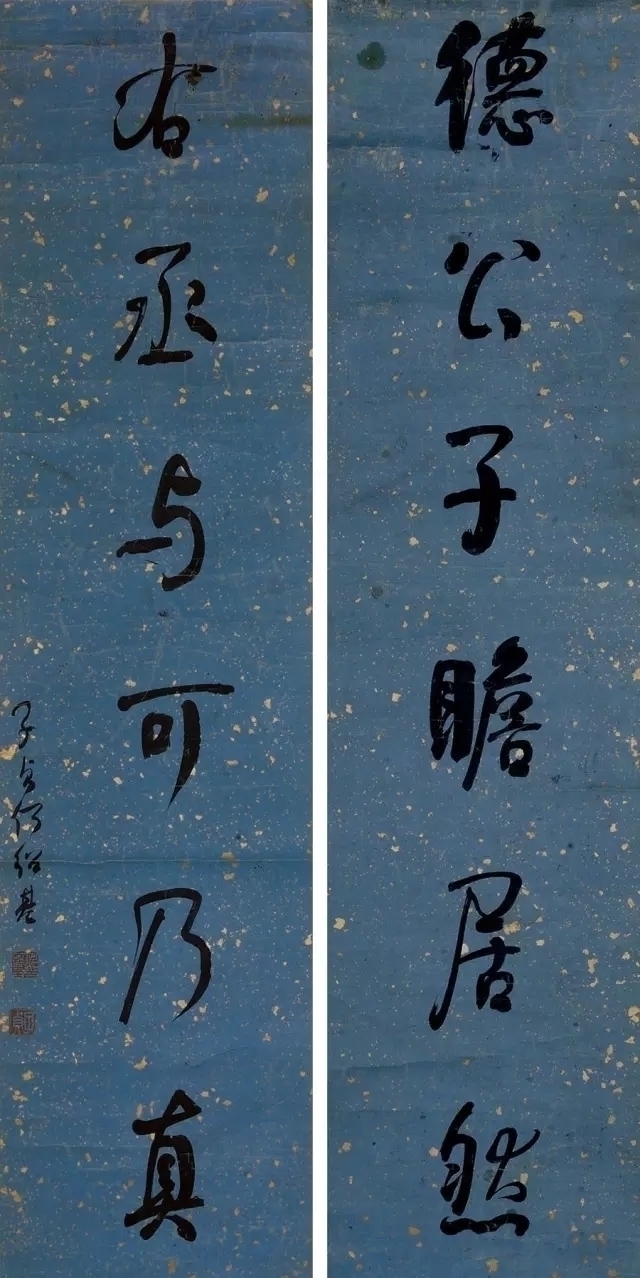 德公子瞻居然
右丞与可乃真
子貞何紹基